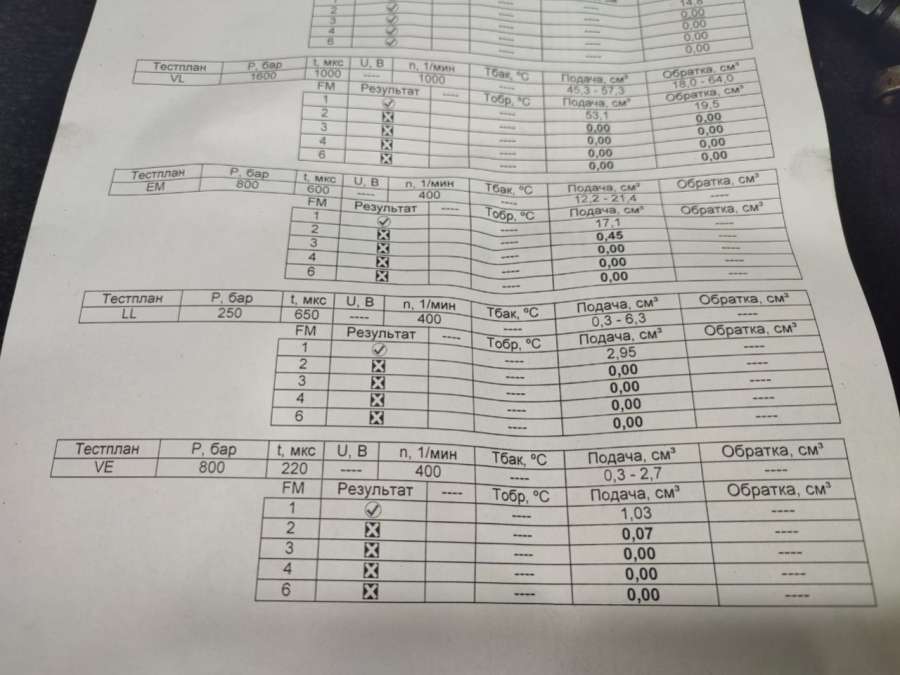 14,8
2 ---- ---- 0,00
3 ---- ---- 0,00
4 ---- ---- 0,00
6 ---- ---- 0,00
Тестплан P, бар t, мкс U, B n, 1/мин Тбак, ºC Подача, см³ Обратка, см³
VL 1600 1000 ---- 1000 ---- 45,3 - 57,3 18,0 - 64,0
FM Результат ---- Тобр, ºC Подача, см³ Обратка, см³
1 ---- 53,1 19,5
2 ---- 0,00 0,00
3 ---- 0,00 0,00
4 ---- 0,00 0,00
6 ---- 0,00 0,00
Тестплан P, бар t, мкс U, B n, 1/мин Тбак, ºC Подача, см³ Обратка, см³
EM 800 600 ---- 400 ---- 12,2 - 21,4 ----
FM Результат ---- Тобр, ºC Подача, см³ Обратка, см³
1 ---- 17,1 ----
2 ---- 0,45 ----
3 ---- 0,00 ----
4 ---- 0,00 ----
6 ---- 0,00 ----
Тестплан P, бар t, мкс U, B n, 1/мин Тбак, ºC Подача, см³ Обратка, см³
LL 250 650 ---- 400 ---- 0,3 - 6,3 ----
FM Результат ---- Тобр, ºC Подача, см³ Обратка, см³
1 ---- 2,95 ----
2 ---- 0,00 ----
3 ---- 0,00 ----
4 ---- 0,00 ----
6 ---- 0,00 ----
Тестплан P, бар t, мкс U, B n, 1/мин Тбак, ºC Подача, см³ Обратка, см³
VE 800 220 ---- 400 ---- 0,3 - 2,7 ----
FM Результат ---- Тобр, ºC Подача, см³ Обратка, см³
1 ---- 1,03 ----
2 ---- 0,07 ----
3 ---- 0,00 ----
4 ---- 0,00 ----
6 ---- 0,00 ----